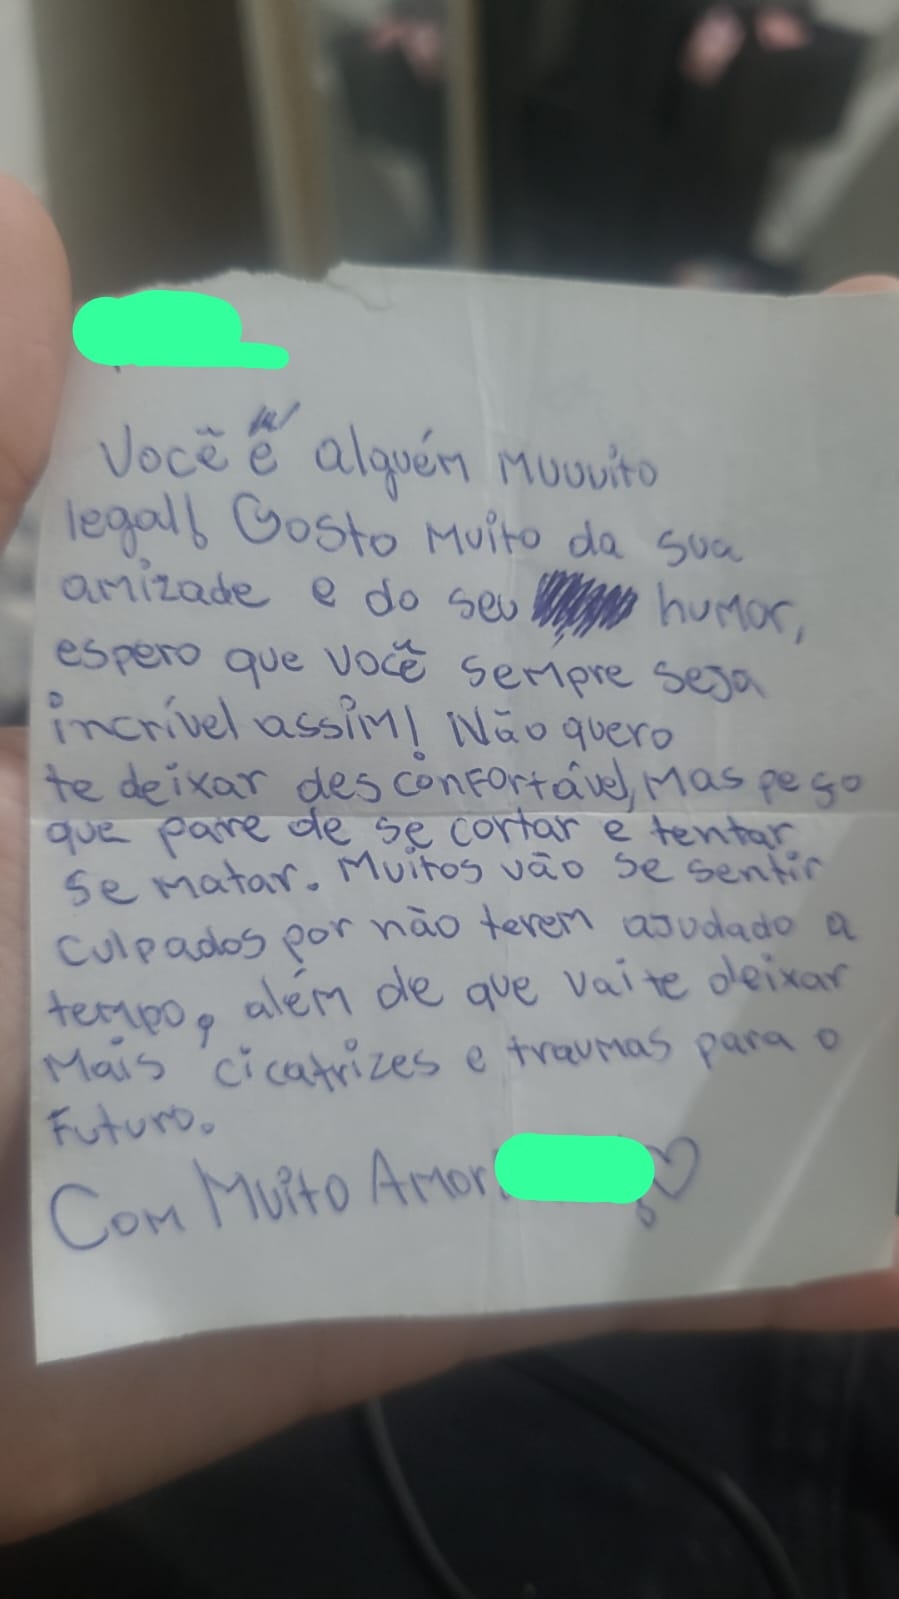 Você é alguém Muuuito
legal! Gosto Muito da sua
amizade e do seu humor,
espero que você sempre seja
incrível assim! Não quero
te deixar desconfortável, Mas peço
que pare de se cortar e tentar
se matar. Muitos vão se sentir
culpados por não terem ajudado a
tempo, além de que vai te deixar
Mais cicatrizes e traumas para o
Futuro.
Com Muito Amor! ♡